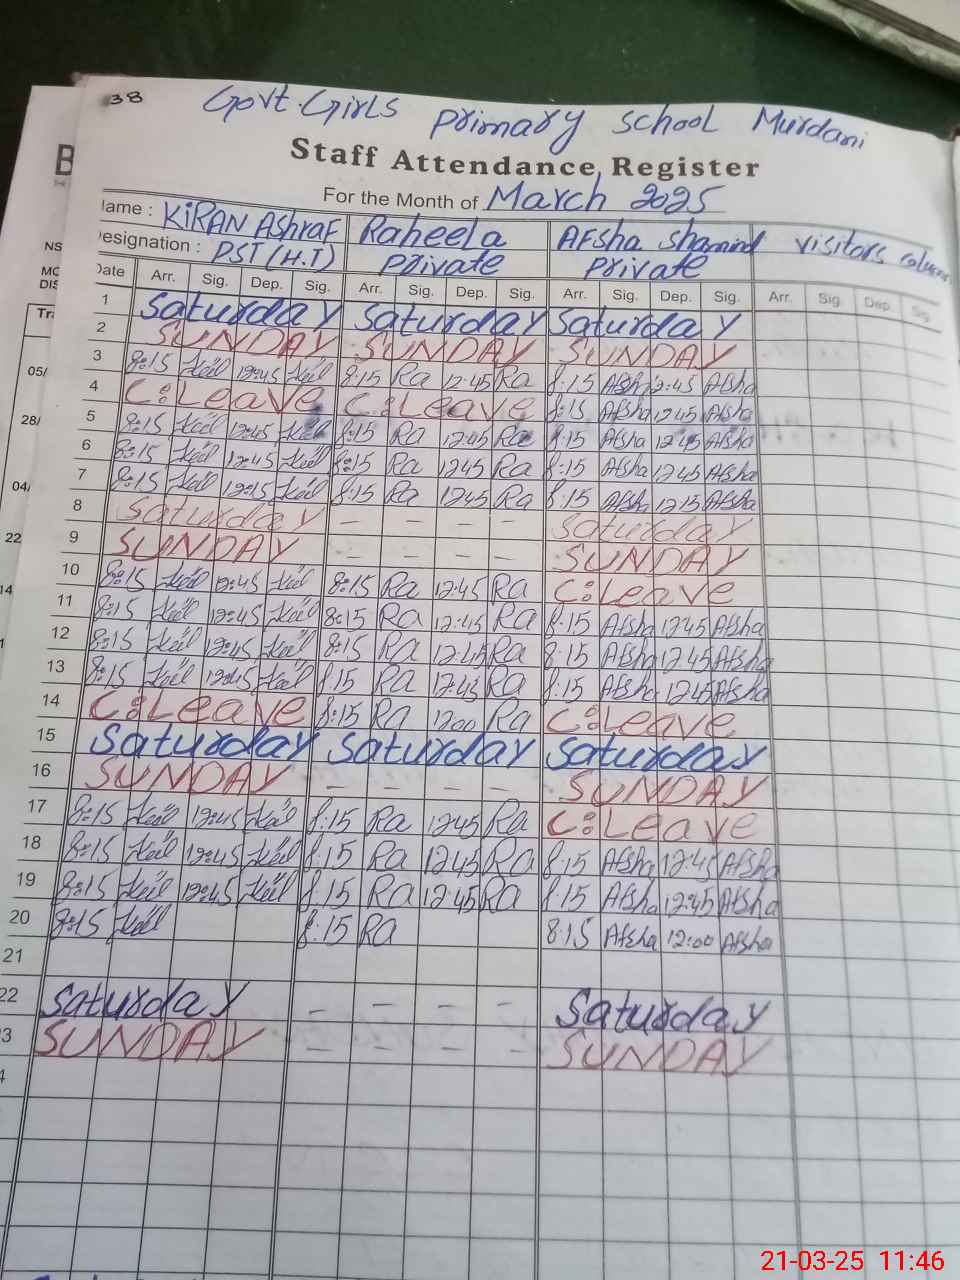 38
Govt. Girls primary school Murdani
Staff Attendance Register
For the Month of March 2025
Name : KIRAN AShraf Raheela Afsha Shamim visitors
Designation : PST (H.T) private private
Date Arr. Sig. Dep. Sig. Arr. Sig. Dep. Sig. Arr. Sig. Dep. Sig. Arr. Sig. Dep. Sig.
1 Saturday Saturday Saturday
2 SUNDAY SUNDAY SUNDAY
3 8:15 12:45 8:15 Ra 12:45 Ra 8:15 Afsha 12:45 Afsha
4 C:Leave C:Leave 8:15 Afsha 12 45 Afsha
5 8:15 12:45 8:15 Ra 12 45 Ra 8:15 Afsha 12 45 Afsha
6 8:15 12:45 8:15 Ra 12 45 Ra 8:15 Afsha 12 45 Afsha
7 8:15 12:15 8:15 Ra 12 45 Ra 8:15 Afsha 12 15 Afsha
8 Saturday – – – – Saturday
9 SUNDAY – – – – SUNDAY
10 8:15 12:45 8:15 Ra 12:45 Ra C:Leave
11 8:15 12:45 8:15 Ra 12:45 Ra 8:15 Afsha 12 45 Afsha
12 8:15 12:45 8:15 Ra 12:45 Ra 8:15 Afsha 12 45 Afsha
13 8:15 12:45 8:15 Ra 12:45 Ra 8:15 Afsha 12 45 Afsha
14 C:Leave 8:15 Ra 12 00 Ra C:Leave
15 Saturday Saturday Saturday
16 SUNDAY – – – – SUNDAY
17 8:15 12:45 8:15 Ra 12 45 Ra C:Leave
18 8:15 12:45 8:15 Ra 12 45 Ra 8:15 Afsha 12:45 Afsha
19 8:15 12:45 8:15 Ra 12 45 Ra 8:15 Afsha 12:45 Afsha
20 8:15 8:15 Ra 8:15 Afsha 12:00 Afsha
21
22 Saturday – – – – Saturday
3 SUNDAY – – – – SUNDAY
4
B
NS
MO
DIS
05/
28/
04/
22
21-03-25 11:46